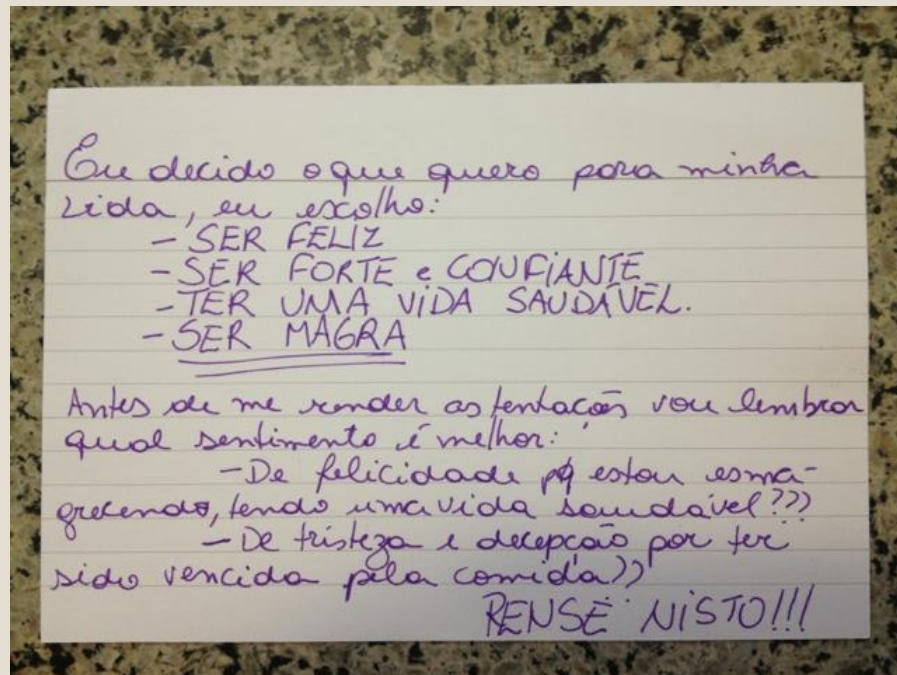 Eu decido o que quero para minha
vida, eu escolho:
- SER FELIZ
- SER FORTE e CONFIANTE
- TER UMA VIDA SAUDÁVEL.
- SER MAGRA
Antes de me render as tentações vou lembrar
qual sentimento é melhor:
- De felicidade pq estou esma-
grecendo, tendo uma vida saudável???
- De tristeza e decepção por ter
sido vencida pela comida??
PENSE NISTO!!!